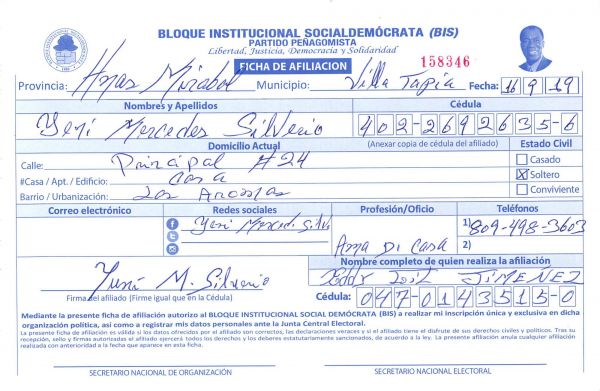 BLOQUE INSTITUCIONAL SOCIALDEMÓCRATA (BIS)
PARTIDO PEÑAGOMISTA
Libertad, Justicia, Democracia y Solidaridad
FICHA DE AFILIACION
158346
Provincia: Hnas Mirabal Municipio: Villa Tapia Fecha: 16 9 19
Nombres y Apellidos Cédula
Yeri Mercedes Silverio 402-2692635-6
Domicilio Actual (Anexar copia de cédula del afiliado) Estado Civil
Calle: Principal #24 Casado
#Casa / Apt. / Edificio: Casa X Soltero
Barrio / Urbanización: Los Conviviente
Correo electrónico Redes sociales Profesión/Oficio Teléfonos
Yeri Merced Silve 1) 809-498-3603
Ama Di Casa 2)
Nombre completo de quien realiza la afiliación
Yeri M. Silverio Eddy José JIMEÑEZ
Firma del afiliado (Firme igual que en la Cédula) Cédula: 047-0143515-0
Mediante la presente ficha de afiliación autorizo al BLOQUE INSTITUCIONAL SOCIAL DEMÓCRATA (BIS) a realizar mi inscripción única y exclusiva en dicha
organización política, así como a registrar mis datos personales ante la Junta Central Electoral.
La presente ficha de afiliación es válida si los datos ofrecidos por el afiliado son correctas, las declaraciones veraces y si el afiliado tiene el disfrute de sus derechos civiles y políticos. Tras su
recepción, sello y firmas autorizadas el afiliado ejercerá todos los derechos y los deberes estatutariamente sancionados, de acuerdo a la ley. La presente afiliación anula cualquier afiliación
realizada con anterioridad a la fecha que aparece en esta ficha.
SECRETARIO NACIONAL DE ORGANIZACIÓN SECRETARIO NACIONAL ELECTORAL